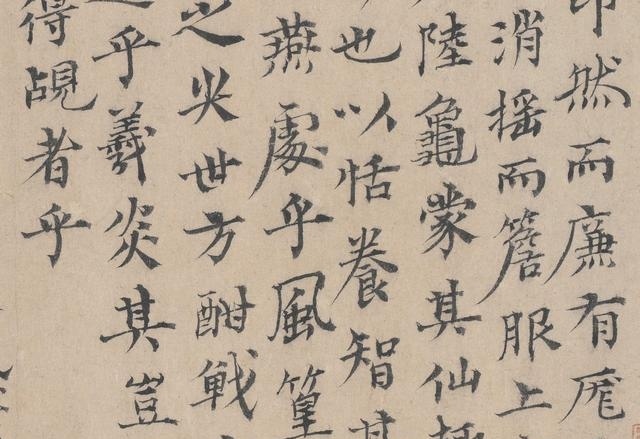 然而廉有
消摇而簷服上
陸龜蒙其仙
也以恬養智其
燕處乎風篁
之世方酣戰
乎羲炎其豈
得覘者乎